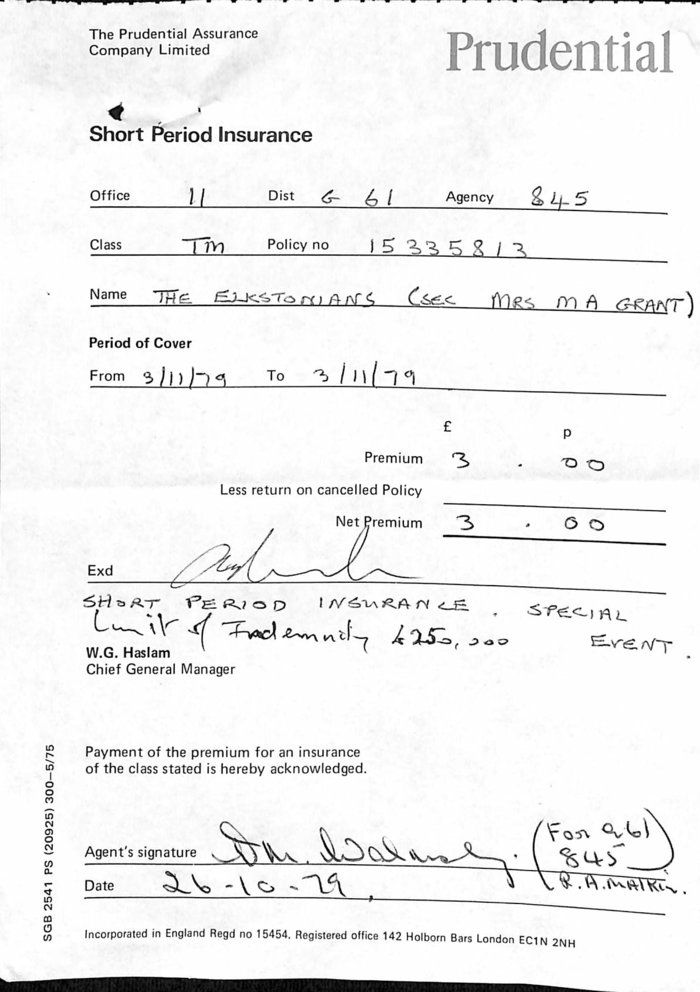 The Prudential Assurance
Company Limited
Prudential
Short Period Insurance
Office 11 Dist G 61 Agency 845
Class Tm Policy no 15335813
Name THE ELKSTONIANS (SEC MRS M A GRANT)
Period of Cover
From 3/11/79 To 3/11/79
£ p
Premium 3 . 00
Less return on cancelled Policy
Net Premium 3 . 00
Exd
SHORT PERIOD INSURANCE . SPECIAL
Limit of Indemnity £250,000 EVENT .
W.G. Haslam
Chief General Manager
Payment of the premium for an insurance
of the class stated is hereby acknowledged.
(For G61
Agent's signature 845
Date 26-10-79, R.A.MATKIN.
Incorporated in England Regd no 15454. Registered office 142 Holborn Bars London EC1N 2NH
SGB 2541 PS (20925) 300–5/75